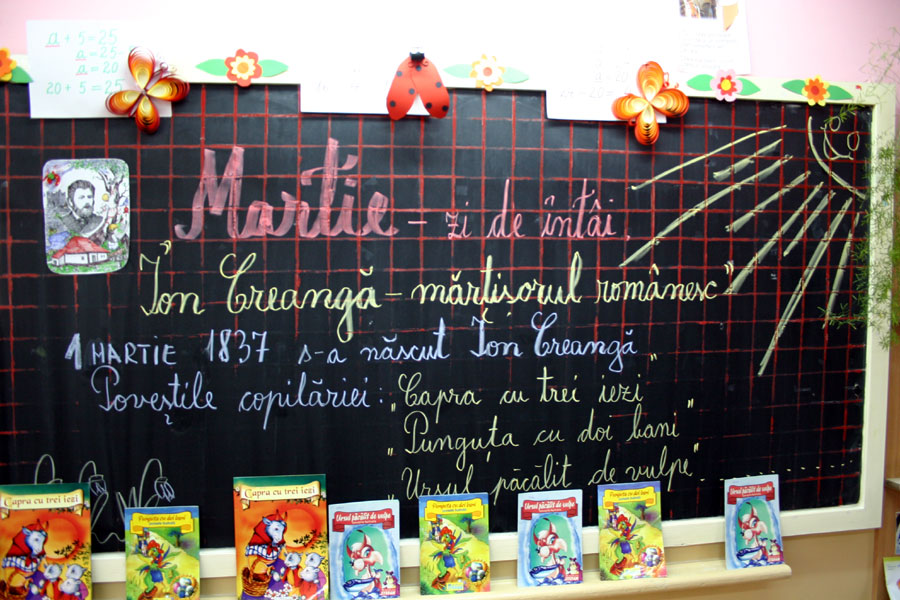 a + 5 = 25
a = 25-
a = 20
20 + 5 = 25
Martie – zi de întâi,
"Ion Creangă – mărțișorul românesc"
1 MARTIE 1837 s-a născut Ion Creangă
Poveștile copilăriei: „Capra cu trei iezi”
„Punguța cu doi bani”
„Ursul păcălit de vulpe”
Capra cu trei iezi
Punguța cu doi bani
Capra cu trei iezi
Ursul păcălit de vulpe
Punguța cu doi bani
Ursul păcălit de vulpe
Punguța cu doi bani
Ursul păcălit de vulpe